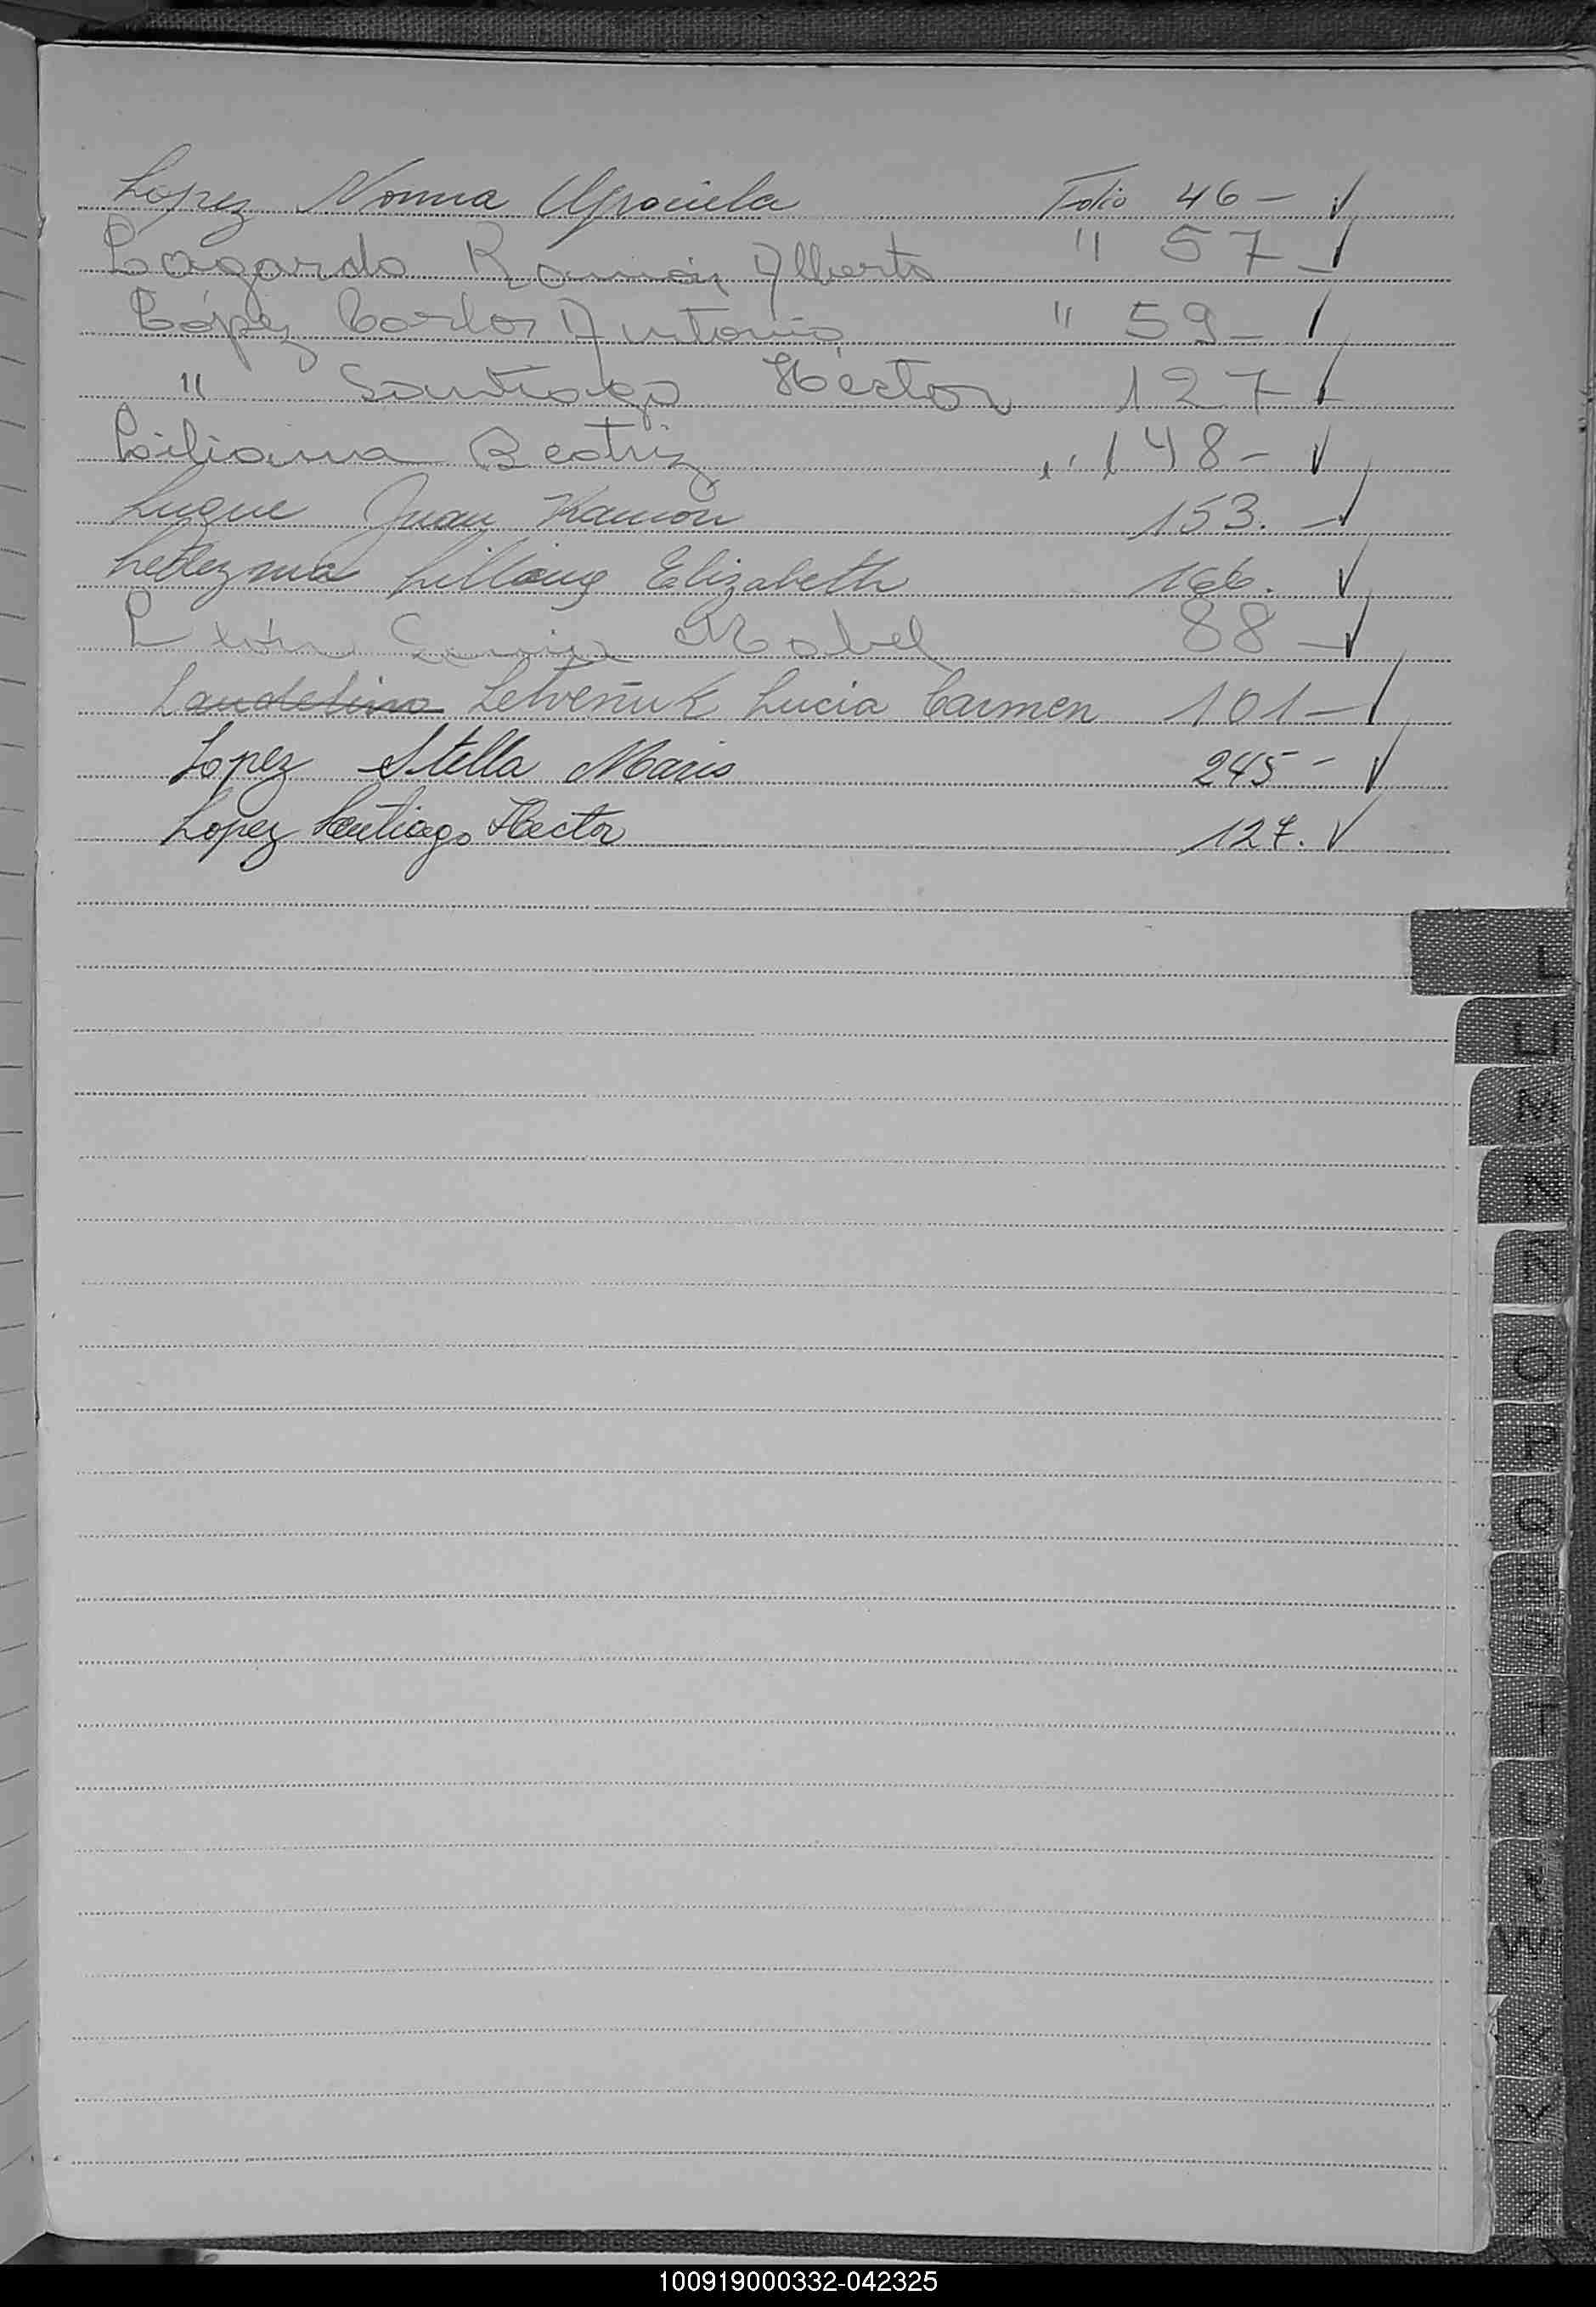 Lopez Norma Graciela Folio 46 - ✓
Lagardo Ramón Alberto " 57 - ✓
López Carlos Antonio " 59 - ✓
" Santiago Héctor 127 ✓
Liliana Beatriz " 148 - ✓
Luque Juan Ramón 153. - ✓
Ledezma Lilliana Elizabeth 166. ✓
Mabel 88 - ✓
Laudelino Letveñuk Lucia Carmen 101 - ✓
Lopez Stella Maris 245 - ✓
Lopez Santiago Hector 127. ✓
L
LL
M
N
Ñ
O
P
Q
R
S
T
U
V
W
X
Y
Z
100919000332-042325